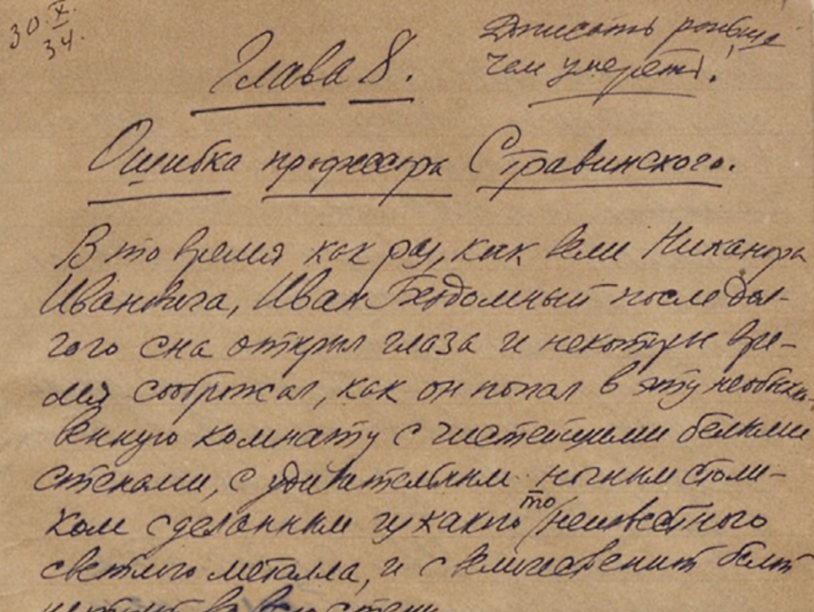 30.X.34.
Дописать раньше
чем умереть!
Глава 8.
Ошибка профессора Стравинского.
В то время как раз, как вели Никанора
Ивановича, Иван Бездомный после дол-
гого сна открыл глаза и некоторое вре-
мя соображал, как он попал в эту необыкно-
венную комнату с чистейшими белыми
стенами, с удивительным ночным столи-
ком сделанным из какого то неизвестного
светлого металла, и с величественной белой
во всю стену